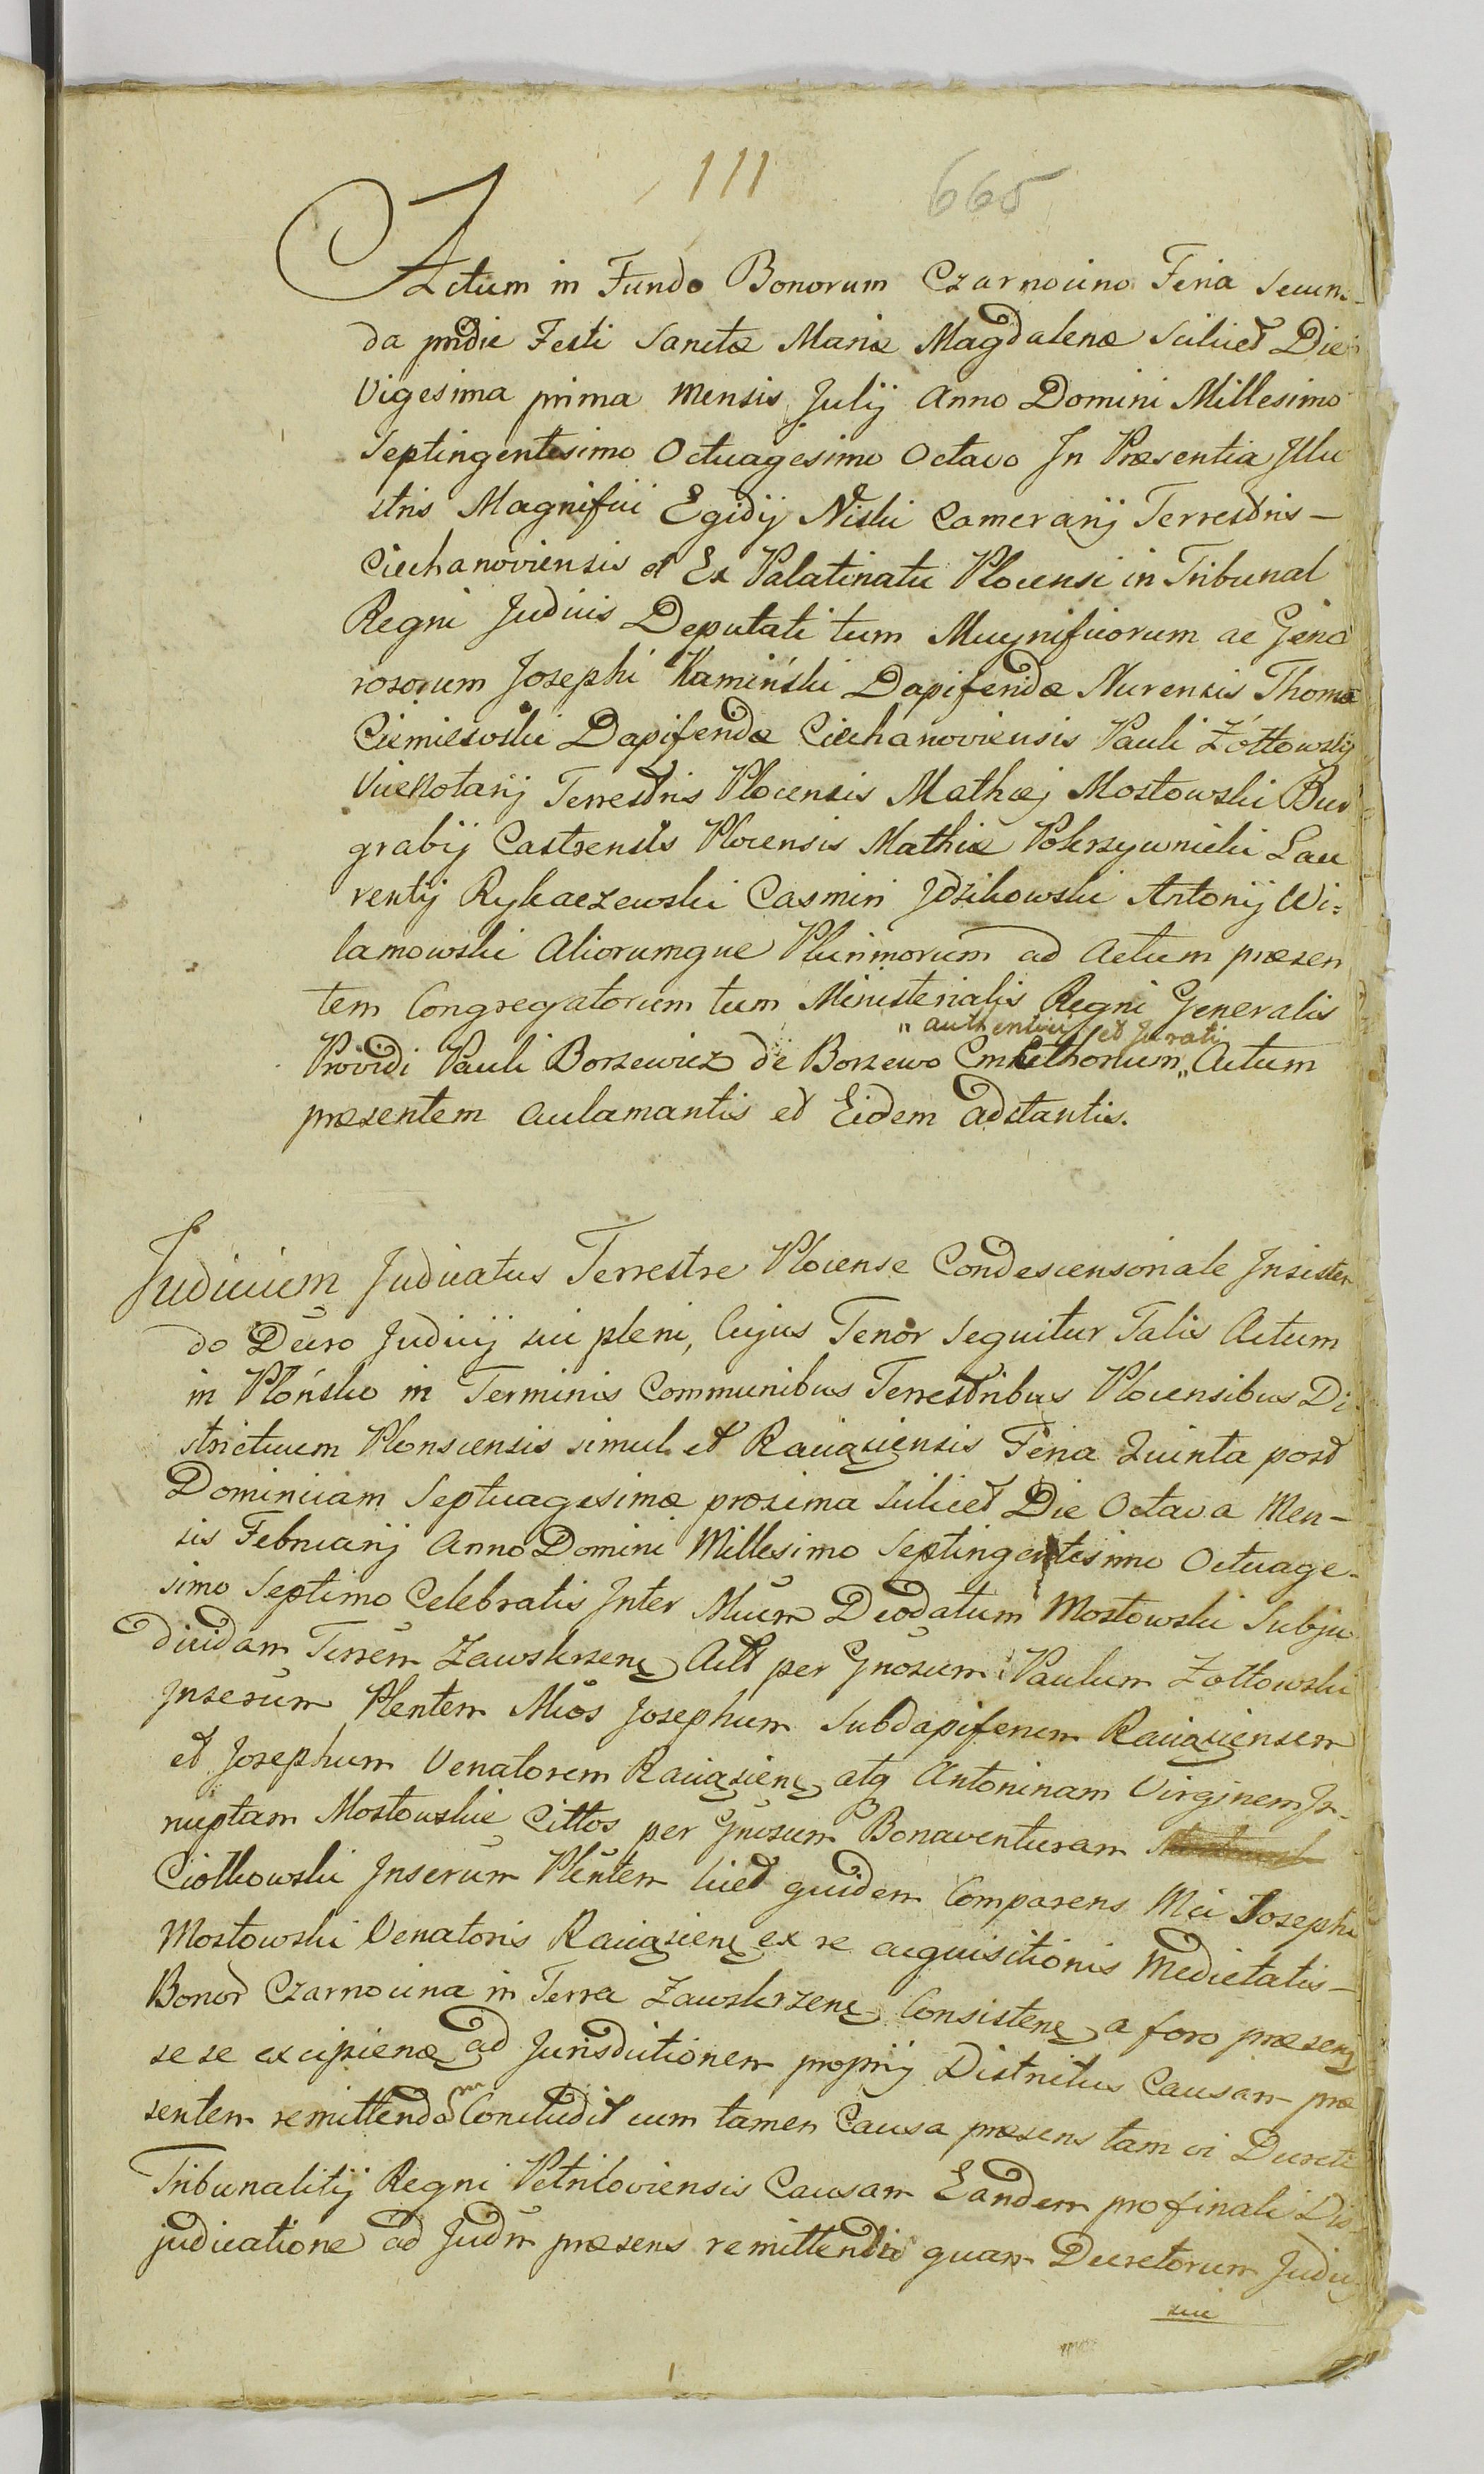 111 665
Actum in Fundo Bonorum Czarnocino Feria Secun-
da pridie Festi Sanctæ Mariæ Magdalenæ Scilicet Die
Vigesima prima Mensis Julij Anno Domini Millesimo
Septingentesimo Octuagesimo Octavo In Præsentia Illu
stris Magnifici Egidij Niski Camerarij Terrestris—
Ciechanoviensis et Ex Palatinatu Plocensi in Tribunal
Regni Judicis Deputati tum Magnificorum ac Gene
rosorum Josephi Kamiński Dapiferidæ Nurensis Thomæ
Ciemiewski Dapiferidæ Ciechanoviensis Pauli Żółtowskij
ViceNotarij Terrestris Plocensis Mathæj Mostowski Bur
grabij Castrensis Plocensis Mathiæ Pokrzywnicki Lau
rentij Rykaczewski Casmiri Jdzikowski Antonij Wi=
lamowski Aliorumque Plurimorum ad Actum præsen
tem Congregatorum tum Ministerialis Regni Generalis
" authentici et Jurati
Providi Pauli Borzewicz de Borzewo Cmethonum " Actum
præsentem acclamantis et Eidem adstantis.
Judicium Judicatus Terrestre Plocense Condescensoriale Insisten
do Decro Judicij sui pleni, Cujus Tenor Sequitur Talis Actum
in Płońsko in Terminis Communibus Terrestribus Plocensibus Di
strictuum Plonscensis simul et Raciąziensis Feria Quinta post
Dominicam Septuagesimæ proxima Scilicet Die Octava Men-
sis Februarij Anno Domini Millesimo Septingentesimo Octuage-
simo Septimo Celebratis Inter Mcum Deodatum Mostowski Subju
dicidam Terrem Zawskrzen Act per Gnosum Paulum Zoltowski
Inserum Plentem Mcos Josephum Subdapiferum Raciąziensem
et Josephum Venatorem Raciązien atq Antoninam Virginem In-
nuptam Mostowskie Cittos per Gnosum Bonaventuram
Ciołkowski Inserum Plentem licet quidem Comparens Mci Josephi
Mostowski Venatoris Raciązien ex re acquisitionis Medietatis—
Bonor Czarnocina in Terra Zawskrzen Consisten a foro præsen
sese excipiena ad Jurisdictionem proprij Districtus Causam præ
sentem remittendam Concludit cum tamen Causa præsens tam vi Decreti
Tribunalitij Regni Petricoviensis Causam Eandem pro finali Dis-
judicatione ad Judm præsens remittendis quam Decretorum Judicij
sui